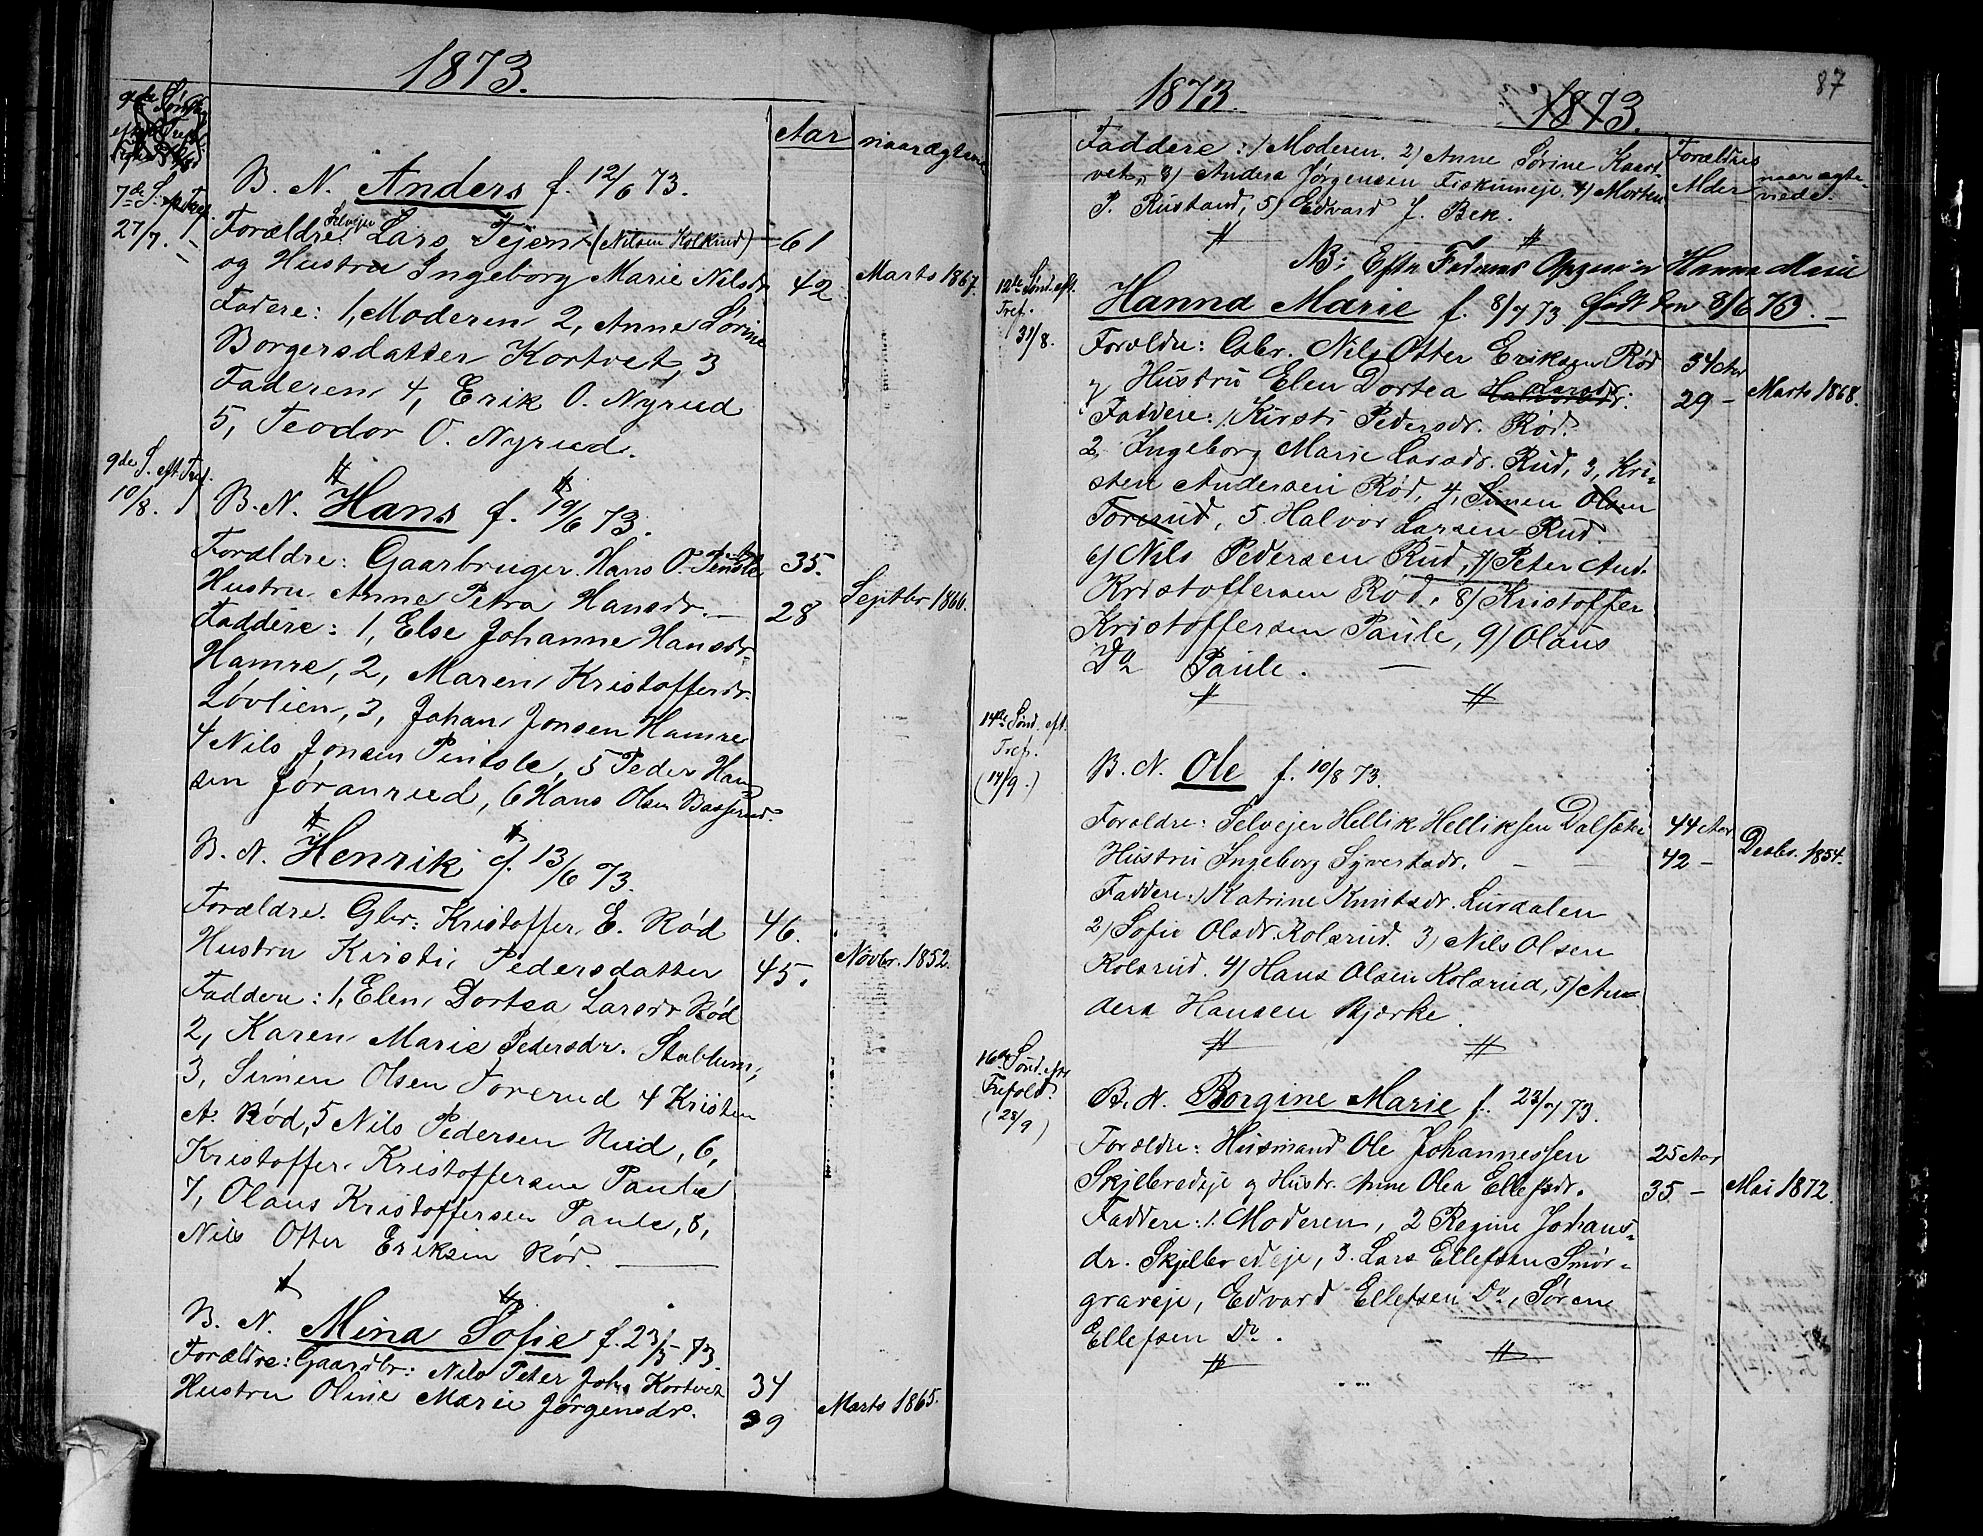 1873.
7de S. e. Tref.
27/7.
B. N. Anders f. 12/6 73.
Aar
naar ægtevi
Forældre: Selvejer Lars Tejen (Nilsen Kolkind) 61
og Hustru Ingeborg Marie Nilsdr 42 Marts 1867.
Fadere: 1, Moderen 2, Anne Sørine
Borgersdatter Kortvet, 3
Faderen 4, Erik O. Nyrud
5, Teodor O. Nyrud.
9de S. eft. Tref.
10/8.
B. N. Hans f. 19/6 73.
Forældre: Gaarbruger Hans O. 35.
Hustru Anne Petra Hansdr. — 28 Septbr 1866.
Faddere: 1, Else Johanne Hansdr
Hamre, 2, Maren Kristoffersdr.
Løvlien, 3, Johan Jonsen Hamre
4 Nils Jonsen Pintsle, 5 Peder Han-
sen Jøranrud, 6 Hans Olsen Basserud.
B. N. Henrik f. 13/6 73.
Forældre. Gbr: Kristoffer E. Rød 46.
Hustru Kirsti Pedersdatter 45. Novbr. 1852.
Faddere: 1, Elen Dortea Larsdr Rød
2, Karen Marie Pedersdr. Stablum,
3, Simen Olsen Torerud 4 Kristen
A. Rød, 5 Nils Pedersen Rud, 6,
Kristoffer Kristoffersen Paule
7, Olaus Kristoffersen Paule, 8,
Nils Otter Eriksen Rød. —
B. N. Mina Sofie f. 23/5 73.
Forældre: Gaardbr: Nils Peter Johs Kortvet 34
Hustru Oline Marie Jørgensdr. 39 Marts 1865.
1873. 1873.
87
Faddere: 1) Moderen. 2) Anne Sørine Kaart-
vet, 3) Anders Jørgensen Fiskumeje. 4) Morten
P. Rustand, 5) Edvard J. Bek.
Forældres Alder
naar ægte-
viede.
NB: Efter Faderens Opgivn Hanna Marie
født den 8/6 73. —
12te Sønd. eft.
Tref.
31/8.
Hanna Marie f. 8/7 73.
Forældre: Gbr. Nils Otter Eriksen Rød 34 Aar
og Hustru Elen Dortea Halvorsdr. Larsdr. 29 — Marts 1868.
Faddere: 1, Kirsti Pedersdr. Rød.
2, Ingeborg Marie Larsdr. Rud, 3, Kri-
sten Andersen Rød, 4, Simen Olsen
Torerud, 5. Halvor Larsen Rud
6) Nils Pedersen Rud, 7) Peter And.
Kristoffersen Rød, 8) Kristoffer
Kristoffersen Paule, 9) Olaus
Do Paule. —
14de Sønd. eft.
Tref.
(14/9.)
B. N. Ole f. 10/8 73.
Forældre: Selvejer Hellik Helliksen Dalsæten 44 Aar
Hustru Ingeborg Syvertsdr. — 42 — Decbr. 1854.
Faddere: 1) Katrine Knutsdr. Lurdalen
2) Sofie Olsdr. Kolsrud. 3) Nils Olsen
Kolsrud. 4) Hans Olsen Kolsrud, 5) An-
ders Hansen Bjerke.
16de Sønd. eft.
Trefold.
(28/9)
B. N. Borgine Marie f. 23/7 73.
Forældre: Husmand Ole Johannessen 25 Aar
Skjelbredeje og Hustr. Anne Olea Ellefsdr. 35. — Mai 1872.
Faddere: 1. Moderen, 2 Regine Johans-
dr. Skjelbredeje, 3. Lars Ellefsen Smør-
graveje, Edvard Ellefsen Do, Søren
Ellefsen Do.